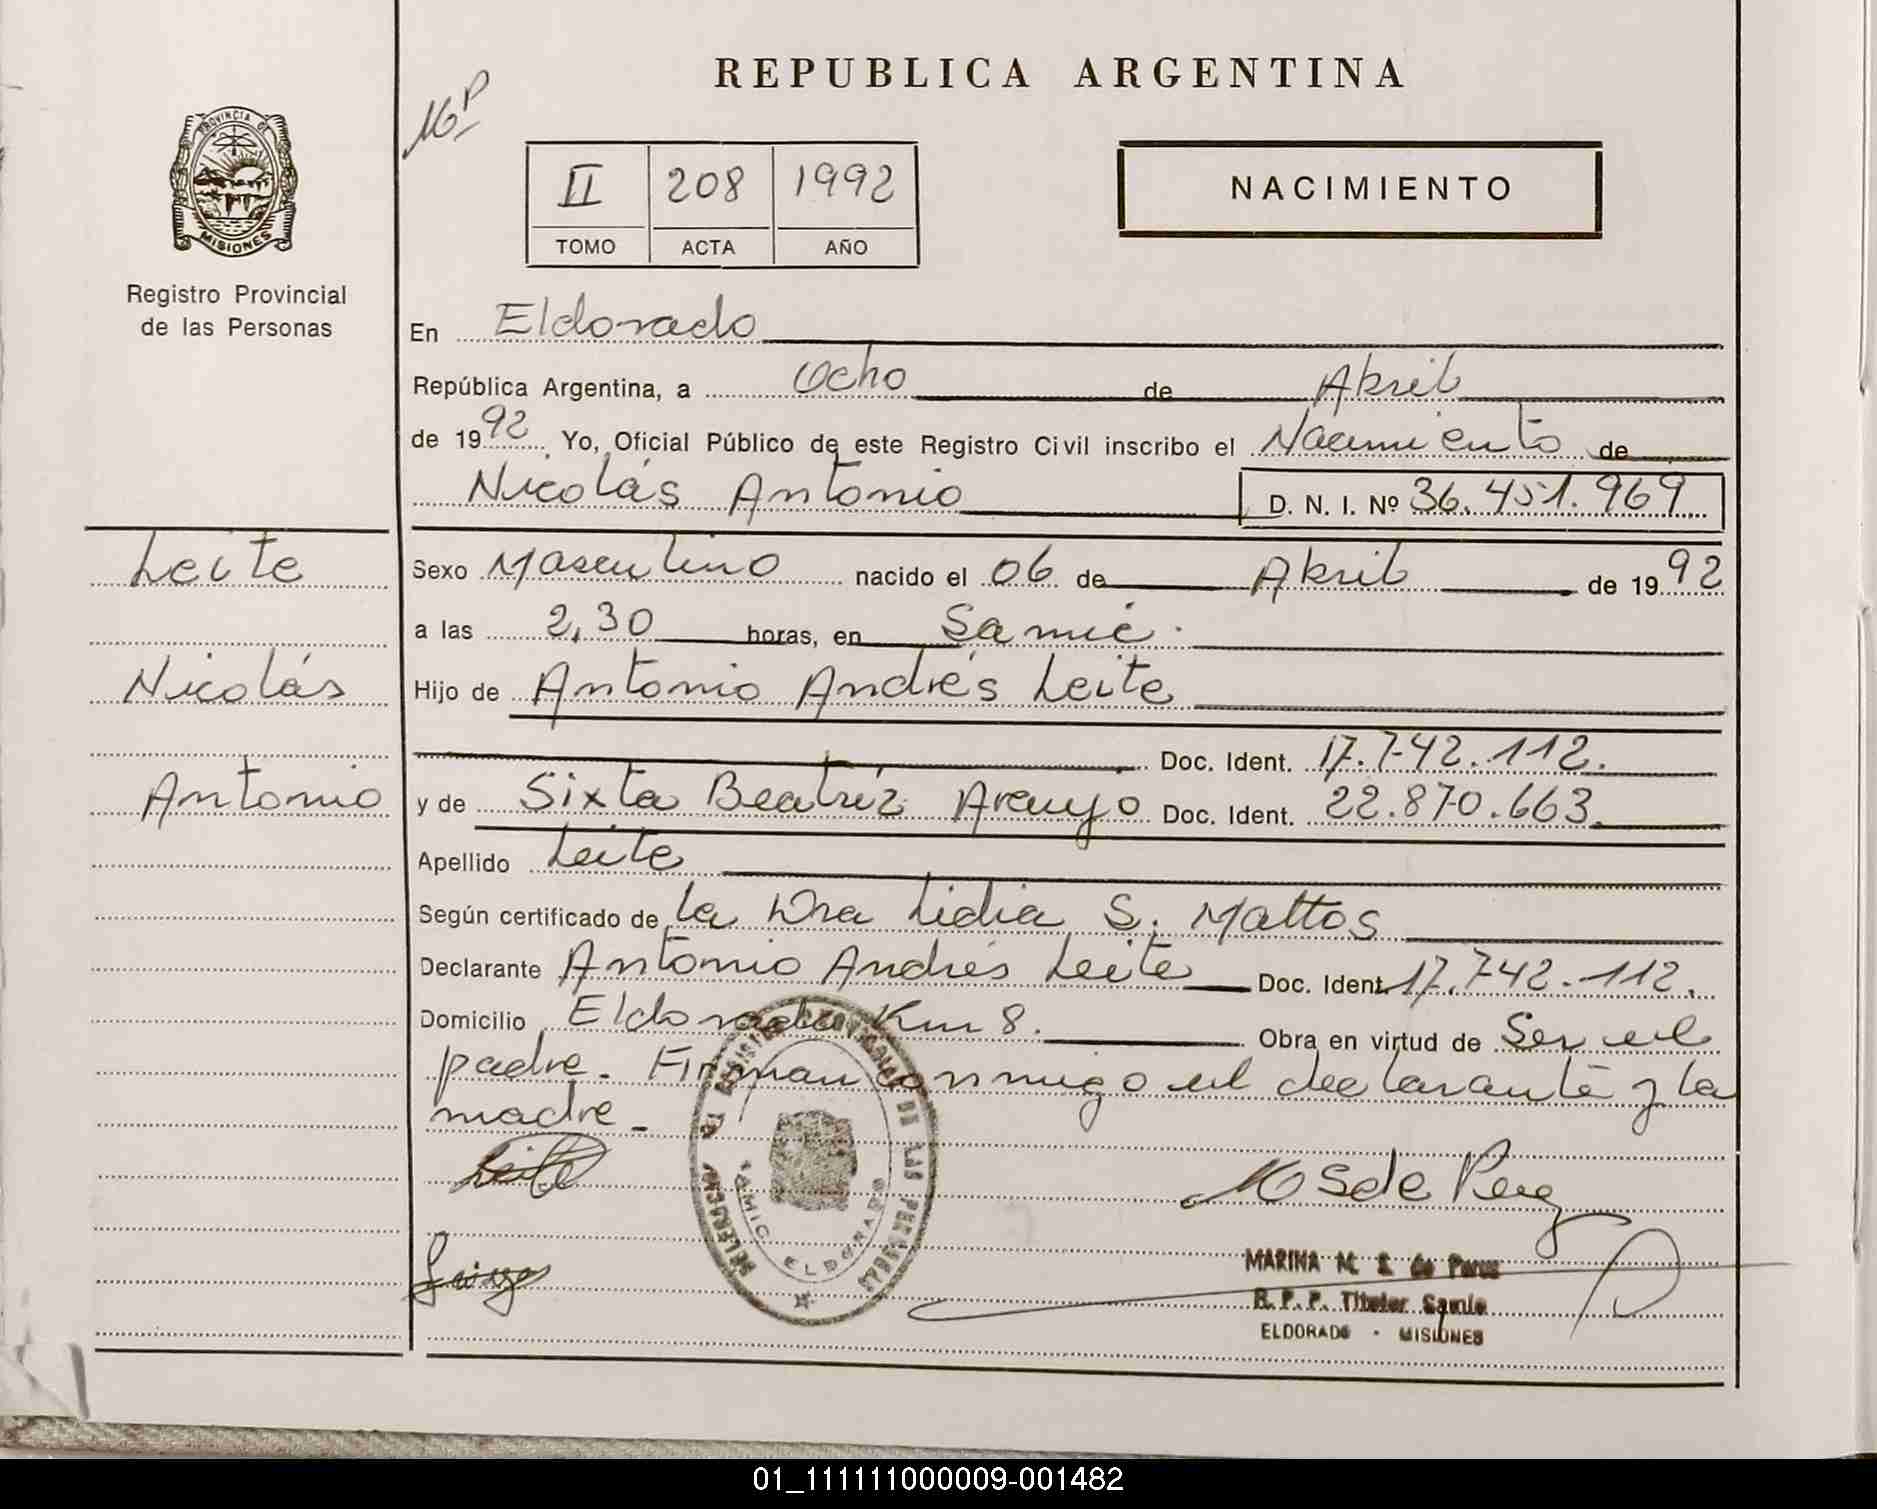 REPUBLICA ARGENTINA
PROVINCIA DE
MISIONES
Registro Provincial
de las Personas
II 208 1992
TOMO ACTA AÑO
NACIMIENTO
En Eldorado
República Argentina, a Ocho de Abril
de 1992 Yo, Oficial Público de este Registro Civil inscribo el Nacimiento de
Nicolás Antonio D. N. I. Nº 36.451.969
Leite
Nicolás
Antonio
Sexo Masculino nacido el 06 de Abril de 1992
a las 2,30 horas, en Samic.
Hijo de Antonio Andrés Leite
Doc. Ident. 17.742.112.
y de Sixta Beatríz Araujo Doc. Ident. 22.870.663.
Apellido Leite
Según certificado de la Dra Lidia S. Mattos
Declarante Antonio Andrés Leite Doc. Ident. 17.742.112.
Domicilio Eldorado Km 8. Obra en virtud de Ser el
padre. Firman conmigo el declarante y la
madre.
Leite
MARINA M. S. de Perez
R. P. P. Titular Samic
ELDORADO - MISIONES
DELEGACION REGISTRO PROVINCIAL DE LAS PERSONAS
SAMIC ELDORADO
01_111111000009-001482